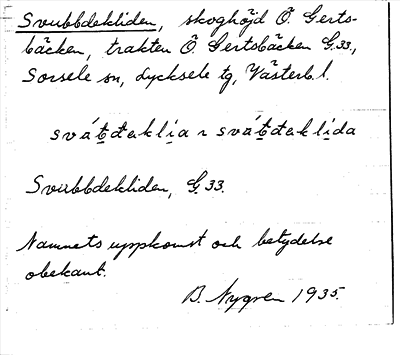 Svubbdekliden, skoghöjd Ö. Gerts-
bäcken, trakten Ö Gertsbäcken G. 33,
Sorsele sn, Lycksele tg, Västerb. l.
svátđeklia ~ svátđeklida
Svubbdekliden, G 33.
Namnets uppkomst och betydelse
obekant.
B. Nygren 1935.